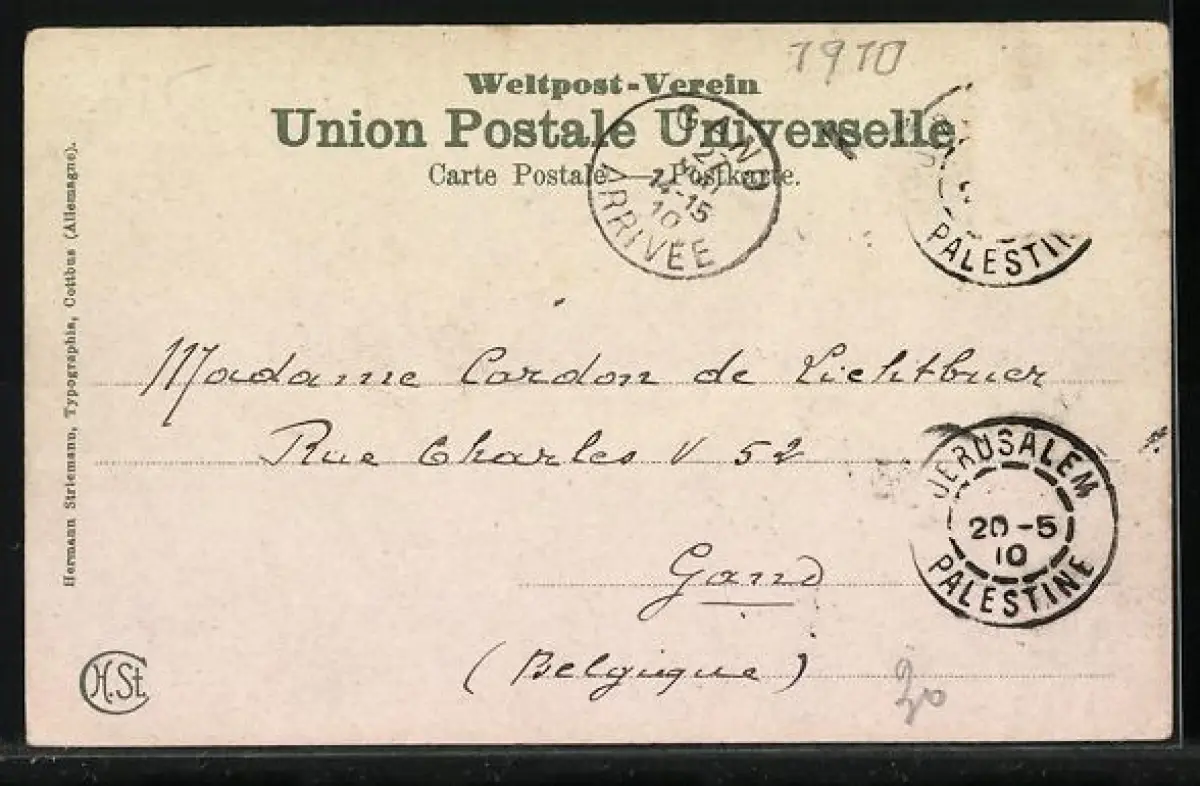 1910
Weltpost-Verein
Union Postale Universelle
Carte Postale — Postkarte.
GAND
14-15
10
ARRIVÉE
PALESTIN
Madame Cardon de Lichtbuer
Rue Charles V 52
Gand
(Belgique)
JERUSALEM
20-5
10
PALESTINE
Hermann Striemann, Typographia, Cottbus (Allemagne).
H.St.